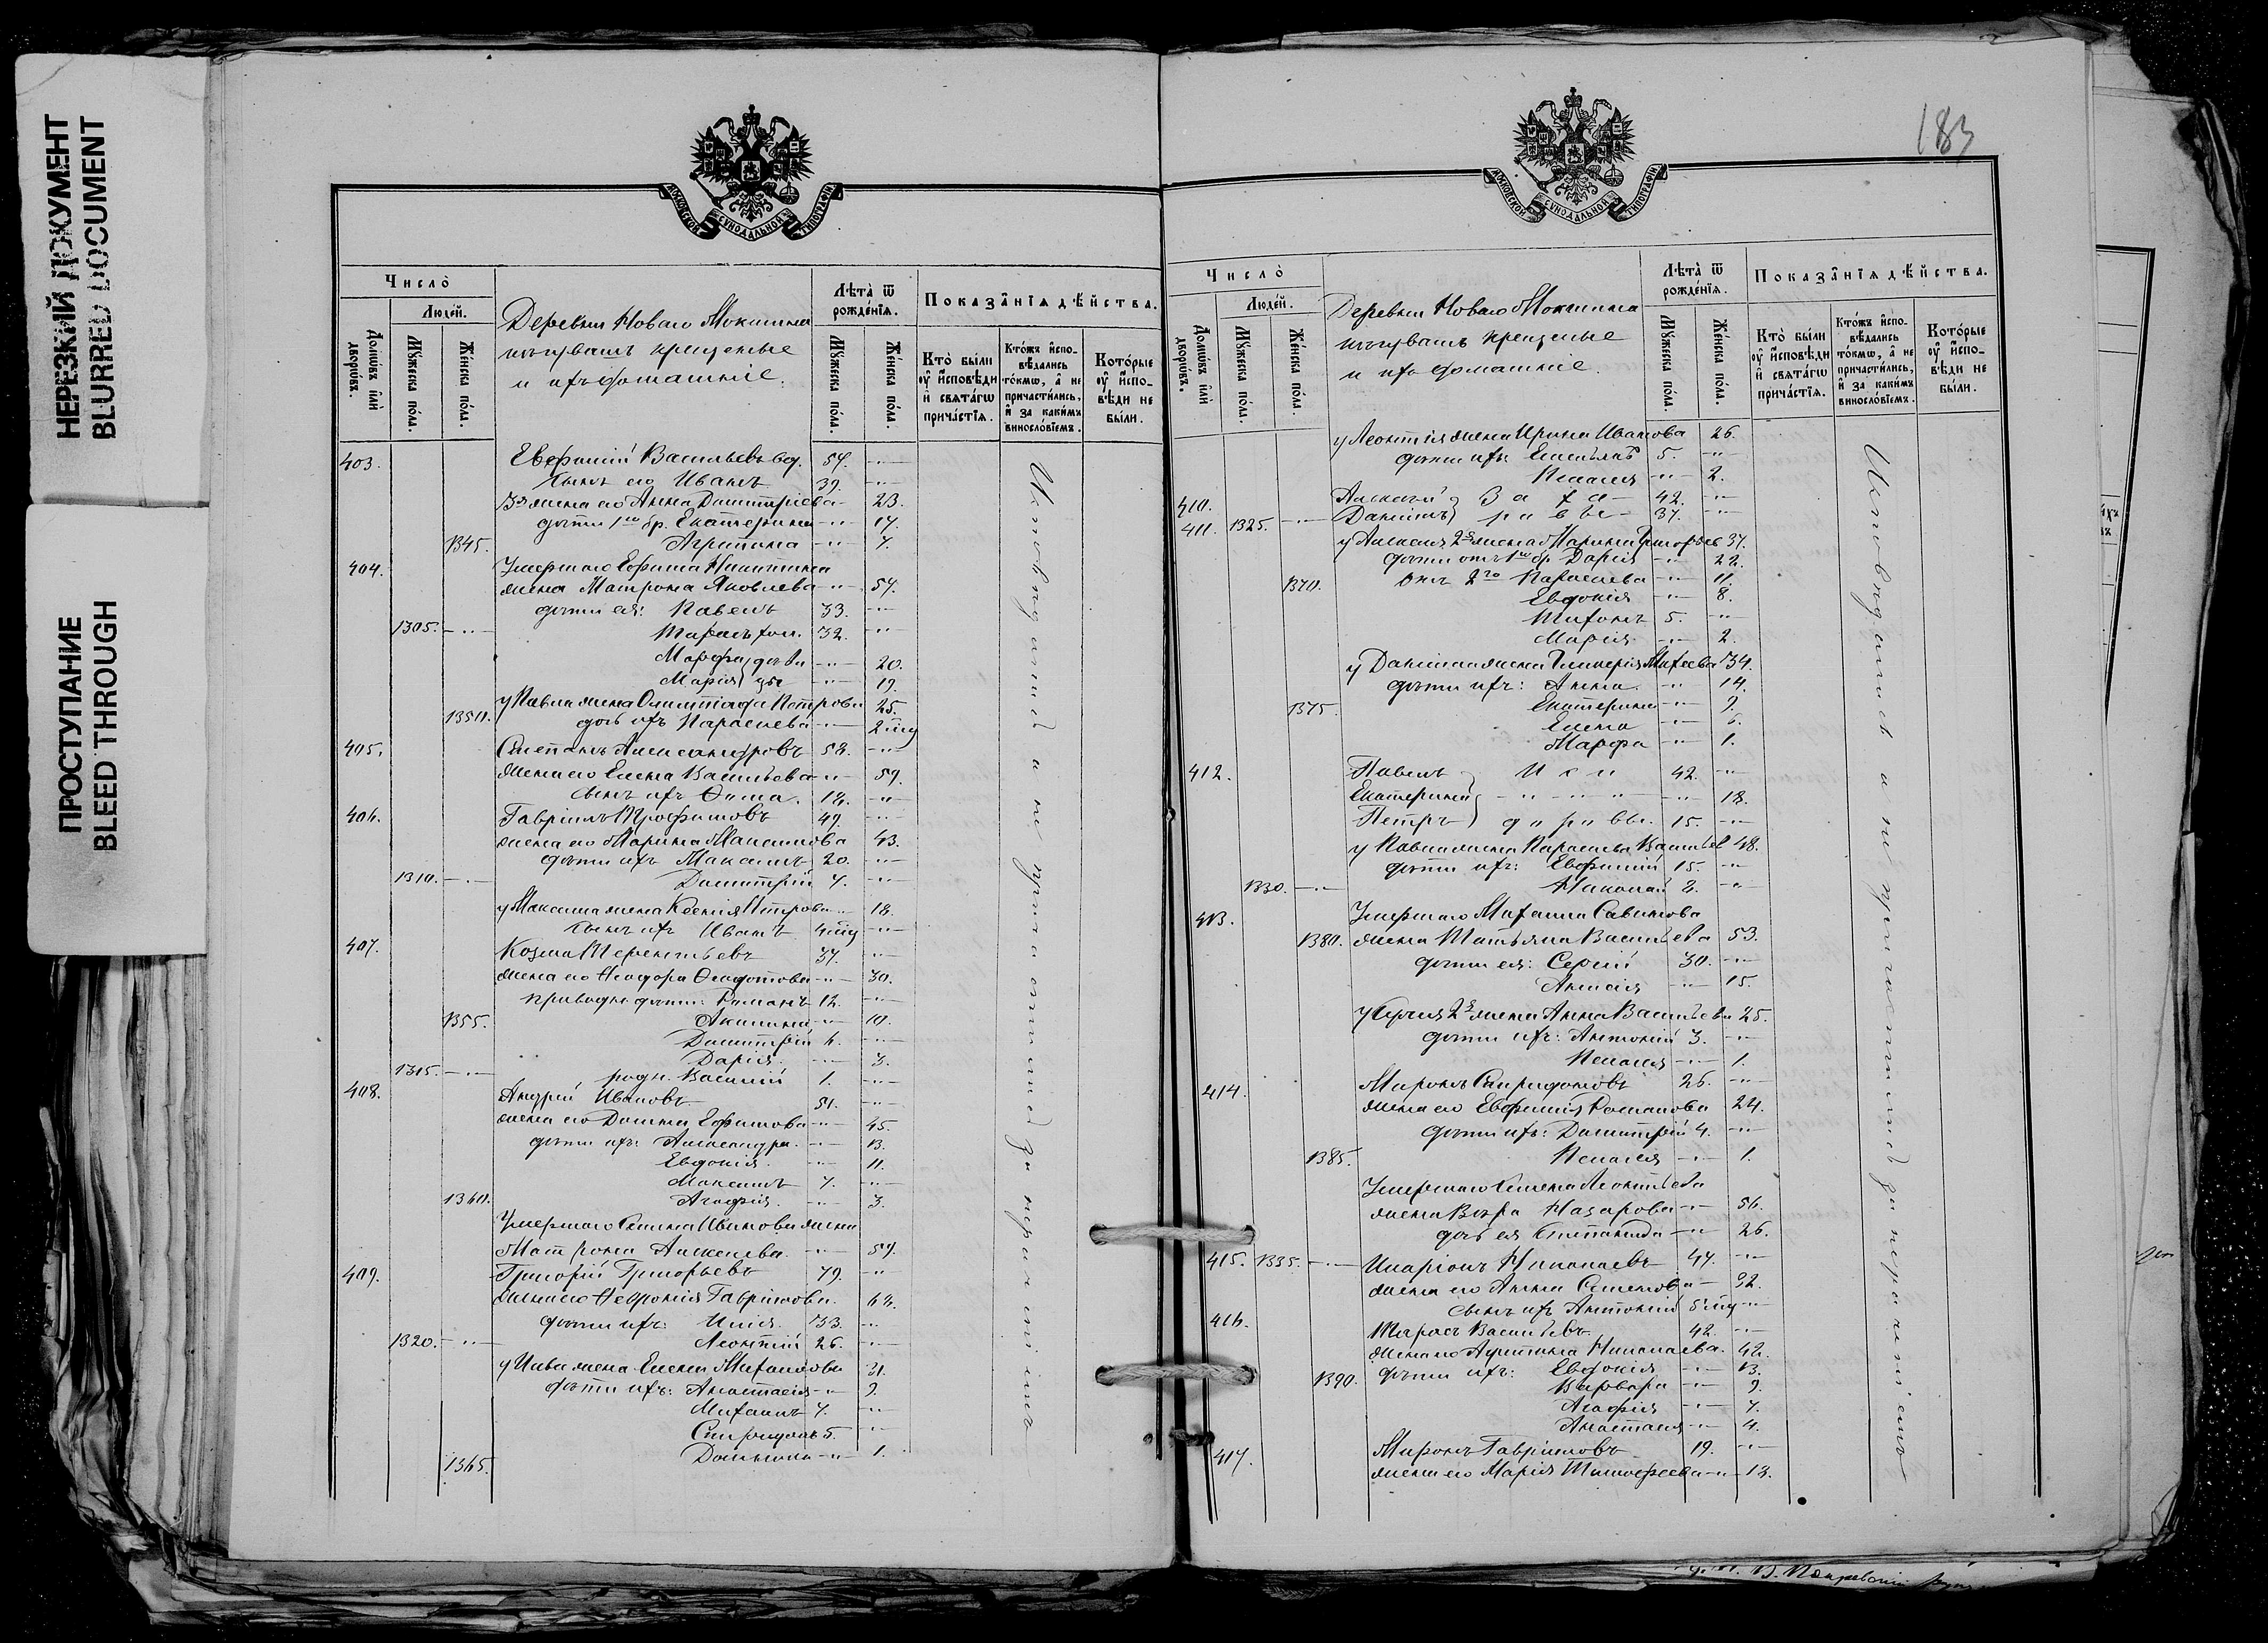 НЕРЕЗКИЙ ДОКУМЕНТ
BLURRED DOCUMENT
ПРОСТУПАНИЕ
BLEED THROUGH
МОСКОВСКОЙ СѴНОДАЛЬНОЙ ТИПОГРАФІИ
Число̀
Людей.
Домѡ́въ и҆лѝ дворѡ́въ.
Мꙋ́жеска по́ла.
Же́нска по́ла.
Деревни Новаго Мокшина
чувашъ крещеные
и ихъ домашніе.
Лѣ́та ѿ рожде́нїѧ.
Мꙋ́жеска по́ла.
Же́нска по́ла.
Показа̑нїѧ дѣ́йства.
Кто̀ бы́ли оу҆ и҆сповѣди и҆ свѧта́гѡ прича́стїѧ.
Кто́жъ и҆спо-вѣдались то́кмѡ, а҆ не причасти́лись, и҆ за каки́мъ винословїемъ.
Кото́рые оу҆ и҆спо-вѣди не бы́ли.
403. Евфимій Васильевъ вд. 57. -"-
сынъ его Иванъ 39. -"-
жена его Анна Димитріева -"- 23.
дѣти 1го бр. Екатерина -"- 17.
1345. Агрипина -"- 7.
404. Умершаго Ефима Никитина
жена Матрона Яковлева -"- 57.
дѣти ея: Павелъ 33. -"-
1305. -"- Тарасъ хол. 32. -"-
Марфа дѣви -"- 20.
Марія цы -"- 19.
у Павла жена Олимпіада Петрова 25.
1350. дочь ихъ Параскева -"- 2 мц
405. Степанъ Александровъ 58. -"-
жена его Елена Васильева -"- 59.
сынъ ихъ Ѳома. 18. -"-
406. Гавріилъ Трофимовъ 49. -"-
жена его Марина Максимова 43.
дѣти ихъ Максимъ 20. -"-
1310. -"- Димитрій 7. -"-
у Максима жена Ксенія Петрова -"- 18.
сынъ ихъ Иванъ 4 мц -"-
407. Козма Терентьевъ 37. -"-
жена его Ѳеодора Ѳедотова -"- 30.
приводн. дѣти: Романъ 12. -"-
1355. Акилина -"- 10.
Димитрій 6. -"-
Дарія. -"- 3.
1315. -"- родн. Василій 1. -"-
408. Андрей Ивановъ 51. -"-
жена его Домна Ефимова -"- 45.
дѣти ихъ: Александра. -"- 13.
Евдокія. -"- 11.
Максимъ 7. -"-
1360. Агафія. -"- 3.
Умершаго Семена Иванова жена
Матрона Алексеева. -"- 57.
409. Григорій Григорьевъ 79. -"-
жена его Февронія Гаврилова. 68.
дѣти ихъ: Илія. 33. -"-
1320. -"- Леонтій 26. -"-
у Ильи жена Елена Михаилова 31.
дѣти ихъ: Анастасія -"- 9.
Михаилъ 7. -"-
Спиридонъ 5. -"-
1365. Домнина -"- 1.
Исповѣдались а не причастились за нераченіемъ
183
МОСКОВСКОЙ СѴНОДАЛЬНОЙ ТИПОГРАФІИ
Число̀
Людей.
Домѡ́въ и҆лѝ дворѡ́въ.
Мꙋ́жеска по́ла.
Же́нска по́ла.
Деревни Новаго Мокшина
чувашъ крещеные
и ихъ домашніе.
Лѣ́та ѿ рожде́нїѧ.
Мꙋ́жеска по́ла.
Же́нска по́ла.
Показа̑нїѧ дѣ́йства.
Кто̀ бы́ли оу҆ и҆сповѣди и҆ свѧта́гѡ прича́стїѧ.
Кто́жъ и҆спо-вѣдались то́кмѡ, а҆ не причасти́лись, и҆ за каки́мъ винословїемъ.
Кото́рые оу҆ и҆спо-вѣди не бы́ли.
у Леонтія жена Ирина Иванова 26.
дѣти ихъ: 5. -"-
Пелагея -"- 2.
410. Алексѣй Заха- 42. -"-
411. 1325. -"- Даніилъ ровы- 37. -"-
у Алексея 2я жена Марина Григорьев 37.
дѣти отъ 1го бр. Дарія -"- 22.
1370. отъ 2го Параскева -"- 11.
Евдокія -"- 8.
Тихонъ 5. -"-
Марія -"- 2.
у Даніила жена Гликерія Михеева 34.
дѣти ихъ: Анна. -"- 14.
1375. Екатерина -"- 9.
Елена -"- 6.
Марфа -"- 1.
412. Павелъ Ики 42. -"-
Екатерина -"- -"- 18.
Петръ доровы. 15. -"-
у Павла жена Параскева Васильев 48.
дѣти ихъ: Евфимій 15. -"-
1330. -"- Николай 8. -"-
413. Умершаго Михаила Савинова
1380. жена Татьяна Васильева 53.
дѣти ея: Сергій 30. -"-
Анисія -"- 15.
у Сергія 2я жена Анна Васильева 25.
дѣти ихъ: Антоній 3. -"-
Пелагея -"- 1.
414. Миронъ Спиридоновъ 26. -"-
жена его Евфимія Романова 24.
дѣти ихъ: Димитрій 4. -"-
1385. Пелагея -"- 1.
Умершаго Семена Леонтьева
жена Вѣра Назарова -"- 56.
дочь ея Степанида -"- 26.
415. 1335. -"- Иларіонъ Николаевъ 47. -"-
жена его Анна Семенова -"- 32.
сынъ ихъ Антоній 5 мц -"-
416. Тарасъ Васильевъ 42. -"-
жена его Агрипина Николаева. 42.
1390. дѣти ихъ: Евдокія -"- 13.
Варвара -"- 9.
Агафія -"- 7.
Анастасія -"- 4.
417. Миронъ Гавриловъ 19. -"-
жена его Марія Тимофеева -"- 18.
Исповѣдались а не причастились за нераченіемъ